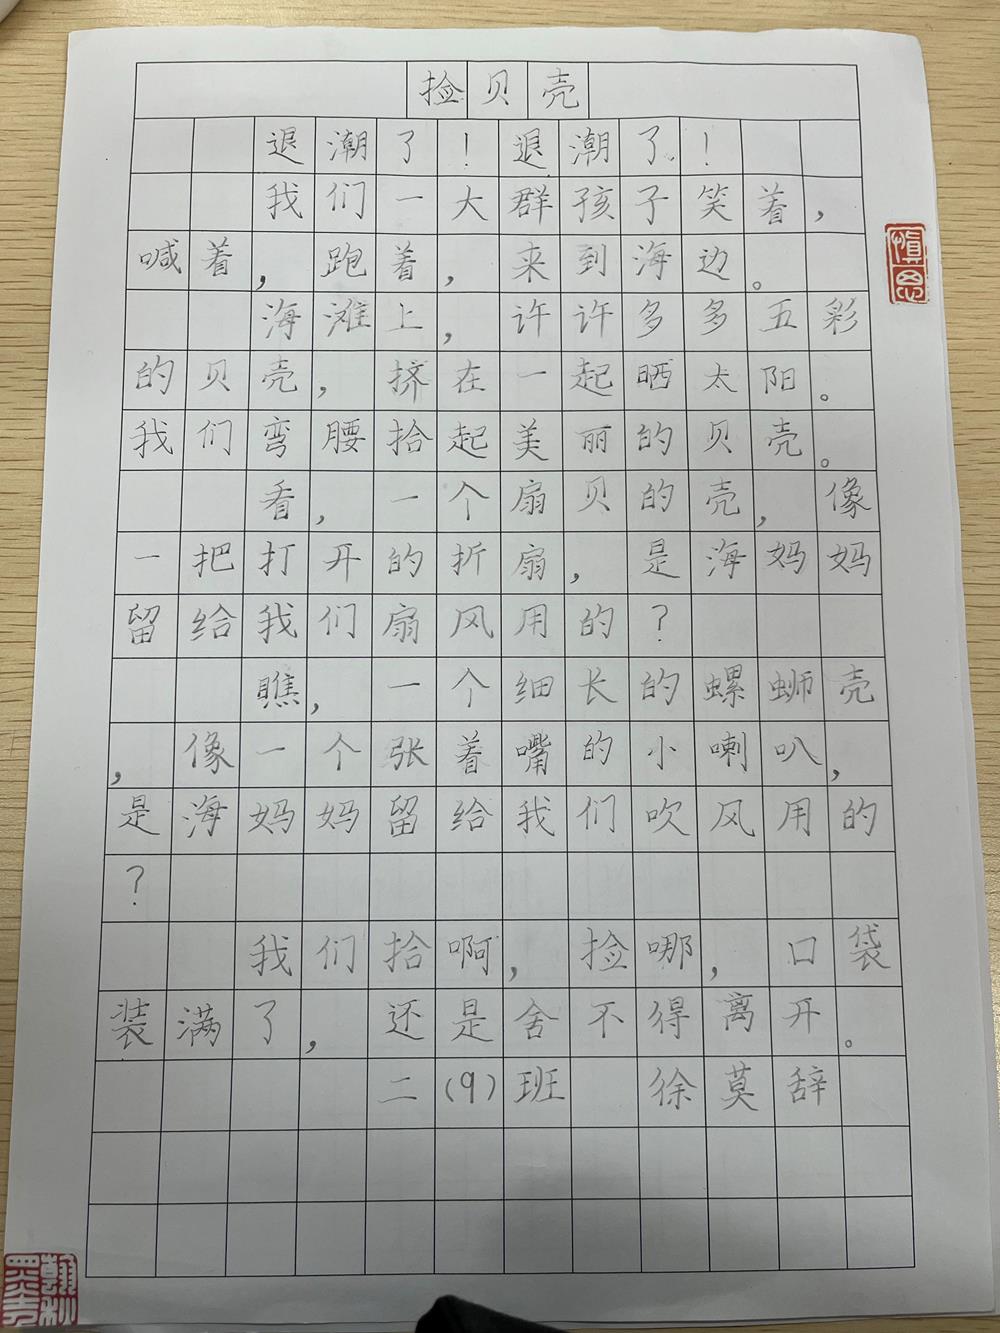 捡贝壳
退潮了！退潮了！
我们一大群孩子笑着，
喊着，跑着，来到海边。
海滩上，许许多多五彩
的贝壳，挤在一起晒太阳。
我们弯腰拾起美丽的贝壳。
看，一个扇贝的壳，像
一把打开的折扇，是海妈妈
留给我们扇风用的？
瞧，一个细长的螺蛳壳
，像一个张着嘴的小喇叭，
是海妈妈留给我们吹风用的
？
我们拾啊，捡哪，口袋
装满了，还是舍不得离开。
二(9)班 徐莫辞
慎思